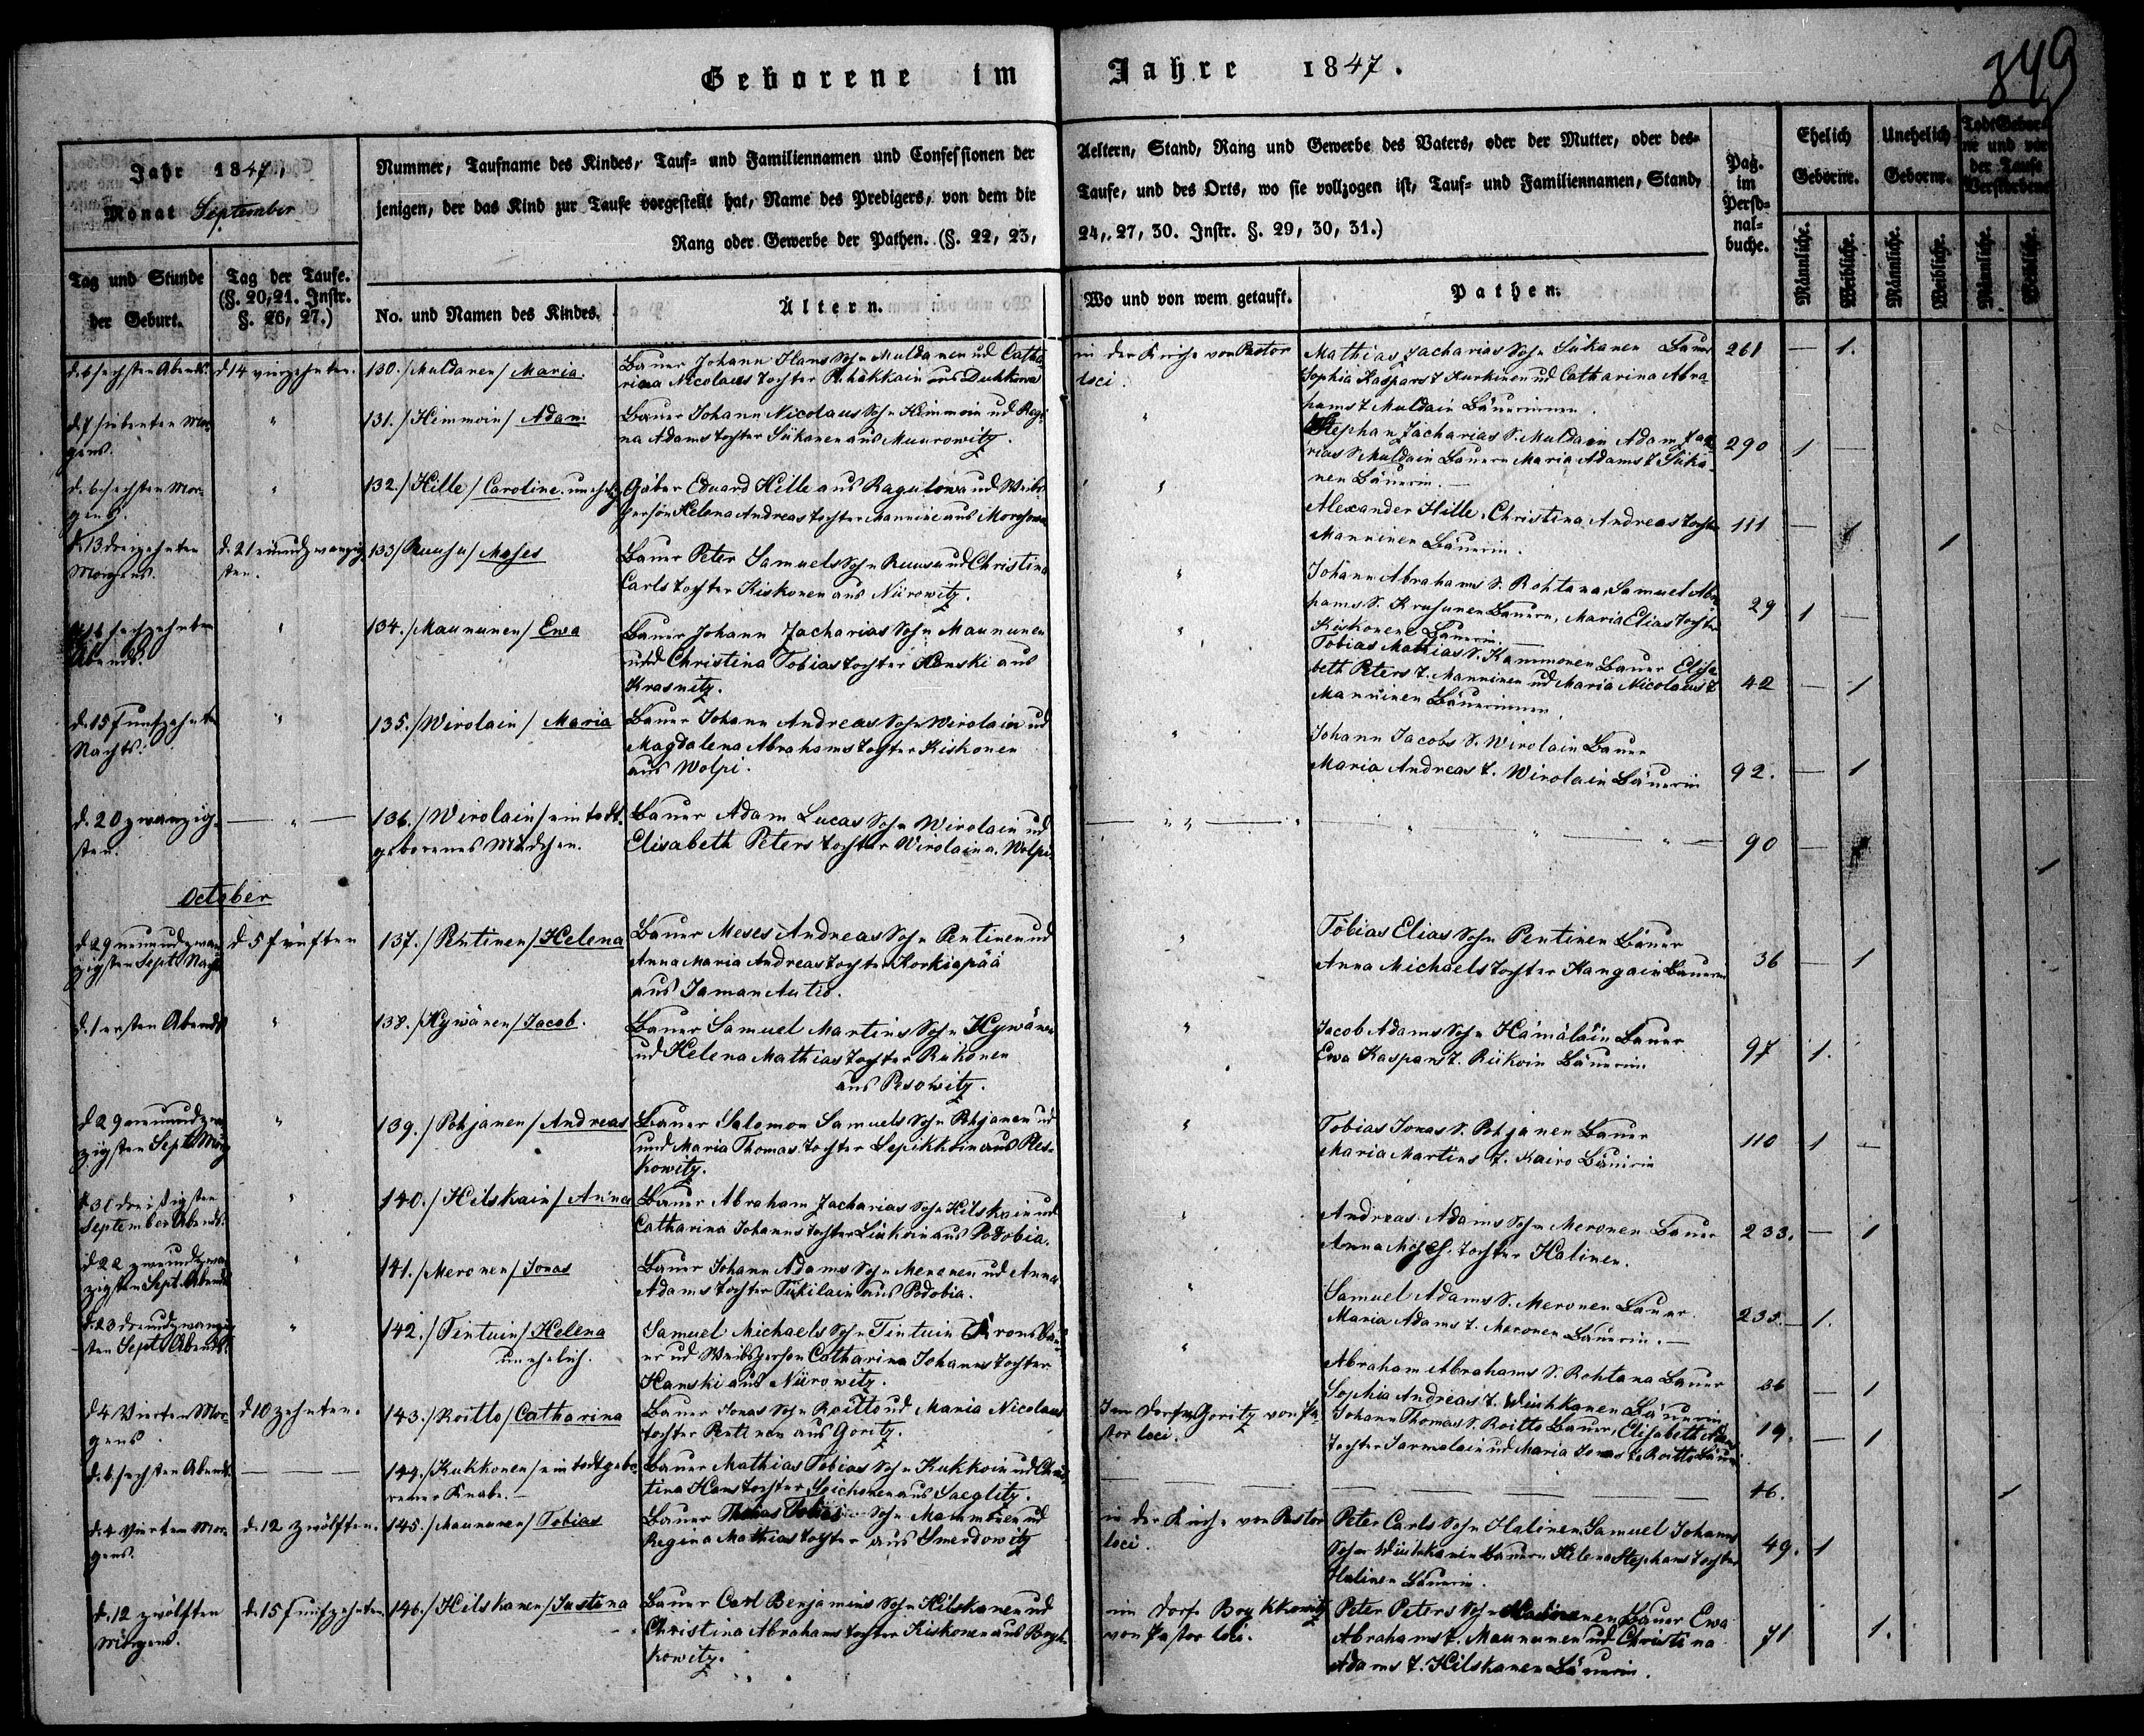 Geborene im Jahre 1847.
349
Jahr 1847,
Monat September
Nummer, Taufname des Kindes, Tauf- und Familiennamen und Confessionen der Aeltern, Stand, Rang und Gewerbe des Vaters, oder der Mutter, oder des-
jenigen, der das Kind zur Taufe vorgestellt hat, Name des Predigers, von dem die Taufe, und des Orts, wo sie vollzogen ist, Tauf- und Familiennamen, Stand,
Rang oder Gewerbe der Pathen. (§. 22, 23, 24, 27, 30. Instr. §. 29, 30, 31.)
Pag. im Perso-nal-buche.
Ehelich Geborne.
Unehelich Geborne.
TodtGeborne und vor der Taufe Verstorbene
Männliche. Weibliche. Männliche. Weibliche. Männliche. Weibliche.
Tag und Stunde der Geburt.
Tag der Taufe. (§. 20, 21. Instr. §. 26, 27.)
No. und Namen des Kindes.
Ältern.
Wo und von wem getauft.
Pathen.
d. 6 sechsten Abends. d 14 vierzehnten. 130./Muldanen/ Maria.
Bauer Johann Hans Sohn Muldanen ud Catha-
rina Nicolaus Tochter Puhakkain aus Duhkowa
in der Kirche von Pastor
loci.
Mathias Zacharias Sohn Sükanen Bauer 261 — 1.
Sophia Kaspars T Kurkinen ud Catharina Abra-
hams T Muldain Bäuerinnen.
d. 7 siebenten Mor-
gens. " 131./Himmoin/ Adam.
Bauer Johann Nicolaus Sohn Himmoin ud Regi-
na Adams Tochter Sükanen aus Muurowitz.
"
Stephan Zacharias S. Muldain Adam Zacha-
rias S Muldain Bauern Maria Adams T Süka- 290 1 —
nen Bäuerin. —
d. 6 sechsten Mor-
gens. " 132./Hille/ Caroline. unehel.
Gäber Eduard Hille aus Ragulowa ud Weibs-
person Helena Andreas Tochter Mannine aus Morosowa
"
Alexander Hille, Christina Andreas Tochter 111 — 1
Manninen Bäuerin.
d. 13 dreizehnten
Morgens. d. 21 einundzwanzig-
sten. 133/Ruusu/ Moses
Bauer Peter Samuels Sohn Ruusu ud Christina
Carls Tochter Kiskonen aus Nürowitz.
"
Johann Abrahams S. Rohtana, Samuel Abra-
hams S. Krusunen Bauern, Maria Elias Tochter 29 1 —
Kiskonen Bäuerin. —
d. 16 sechzehnten
Abends. " 134./Maununen/ Ewa
Bauer Johann Zacharias Sohn Maununen
und Christina Tobias Tochter Hanski aus
Krasnitz.
"
Tobias Mathias S. Kammonen Bauer Elisa-
beth Peters T. Manninen ud Maria Nicolaus T 42 — 1
Manninen Bäuerinnen.
d. 15 funfzehnten
Nachts. " 135./Wirolain/ Maria
Bauer Johann Andreas Sohn Wirolain ud
Magdalena Abrahams Tochter Kiskonen
aus Wolpi.
"
Johann Jacobs S. Wirolain Bauer
Maria Andreas T. Wirolain Bäuerin 92. — 1
d. 20 zwanzig-
sten. — " — 136./Wirolain/ ein todt-
geborenes Mädchen.
Bauer Adam Lucas Sohn Wirolain ud
Elisabeth Peters Tochter Wirolain a. Wolpi.
— " " — " — " — " — 90 — 1
October
d 29 neunundzwan-
zigsten Sept. Nachts d 5 fünften 137./Pentinen/ Helena
Bauer Moses Andreas Sohn Pentinen ud
Anna Maria Andreas Tochter Korkiapää
aus Jaman Autio.
"
Tobias Elias Sohn Pentinen Bauer
Anna Michaels Tochter Kangain Bäuerin 36 — 1
d. 1 ersten Abends " 138./Hywänen/ Jacob.
Bauer Samuel Martins Sohn Hywänen
ud Helena Mathias Tochter Rükonen
aus Pesowitz.
"
Jacob Adams Sohn Hämäläin Bauer
Ewa Kaspars T. Rükoin Bäuerin. 97 1.
d 29 neunundzwan-
zigsten Sept. Morg. " 139./Pohjanen/ Andreas
Bauer Salomon Samuels Sohn Pohjanen ud
und Maria Thomas Tochter Sepikkoin aus Ples-
kowitz.
"
Tobias Jonas S. Pohjanen Bauer
Maria Martins T. Kairo Bäuerin 110 1 —
d 30 dreißigsten
September Abends. " 140./Hilskain/ Anna
Bauer Abraham Zacharias Sohn Hilskain ud
Catharina Johanns Tochter Liukoin aus Podobia.
"
Andreas Adams Sohn Meronen Bauer 233. — 1
Anna Tochter Halinen.
d 22 zweiundzwan-
zigsten Sept. Abends " 141./Meronen/ Jonas
Bauer Johann Adams Sohn Meronen ud Anna
Adams Tochter Tükilain aus Podobia.
"
Samuel Adams S. Meronen Bauer
Maria Adams T. Meronen Bäuerin. — 233. — 1.
d. 23 dreiundzwanzig-
sten Sept. Abends. " 142./Tintuin/ Helena
unehelich.
Samuel Michaels Sohn Tintuin Kronsbau-
er ud Weibsperson Catharina Johanns Tochter
Hanski aus Nürowitz.
"
Abraham Abrahams S. Rohtana Bauer
Sophia Andreas T. Wiuhkanen Bäuerin 26 — 1
d 4 Vierten Mor-
gens. d 10 zehnten. 143./Roitto/ Catharina
Bauer Jonas Sohn Roitto ud Maria Nicolaus
Tochter Pentinen aus Goritz.
Im Dorfe Goritz von Pa-
stor loci.
Johann Thomas S. Roitto Bauer, Elisabeth
Tochter Sarmalain ud Maria Jonas T. Roitto Bäuerin 19. — 1
d. 6 sechsten Abends. — — — 144./Kukkonen/ ein todtgebo-
rener Knabe. —
Bauer Mathias Tobias Sohn Kukkoin ud Chris-
tina Hans Tochter Seichonen aus Saeglitz.
— — — — — 46. 1
d. 4 Vierten Mor-
gens. d. 12 zwölften. 145./Maununen/ Tobias
Bauer Tobias Sohn Mammonen ud
Regina Mathias Tochter aus Smerdowitz
in der Kirche von Pastor
loci.
Peter Carls Sohn Halinen, Samuel Johanns
Sohn Wiuhkanen Bauern Helena Stephans Tochter 49. 1
Halinen Bäuerin.
d. 12 zwölften
Morgens. d. 15 funfzehnten. 146./Hilskanen/ Justina
Bauer Carl Benjamins Sohn Hilskanen ud
Christina Abrahams Tochter Kiskonen aus Boyk-
kowitz.
im Dorfe Boykkowitz
von Pastor loci.
Peter Peters Sohn Bauer Ewa
Abrahams T. Maununen ud Christina 71 1.
Adams T. Hilskanen Bäuerin.